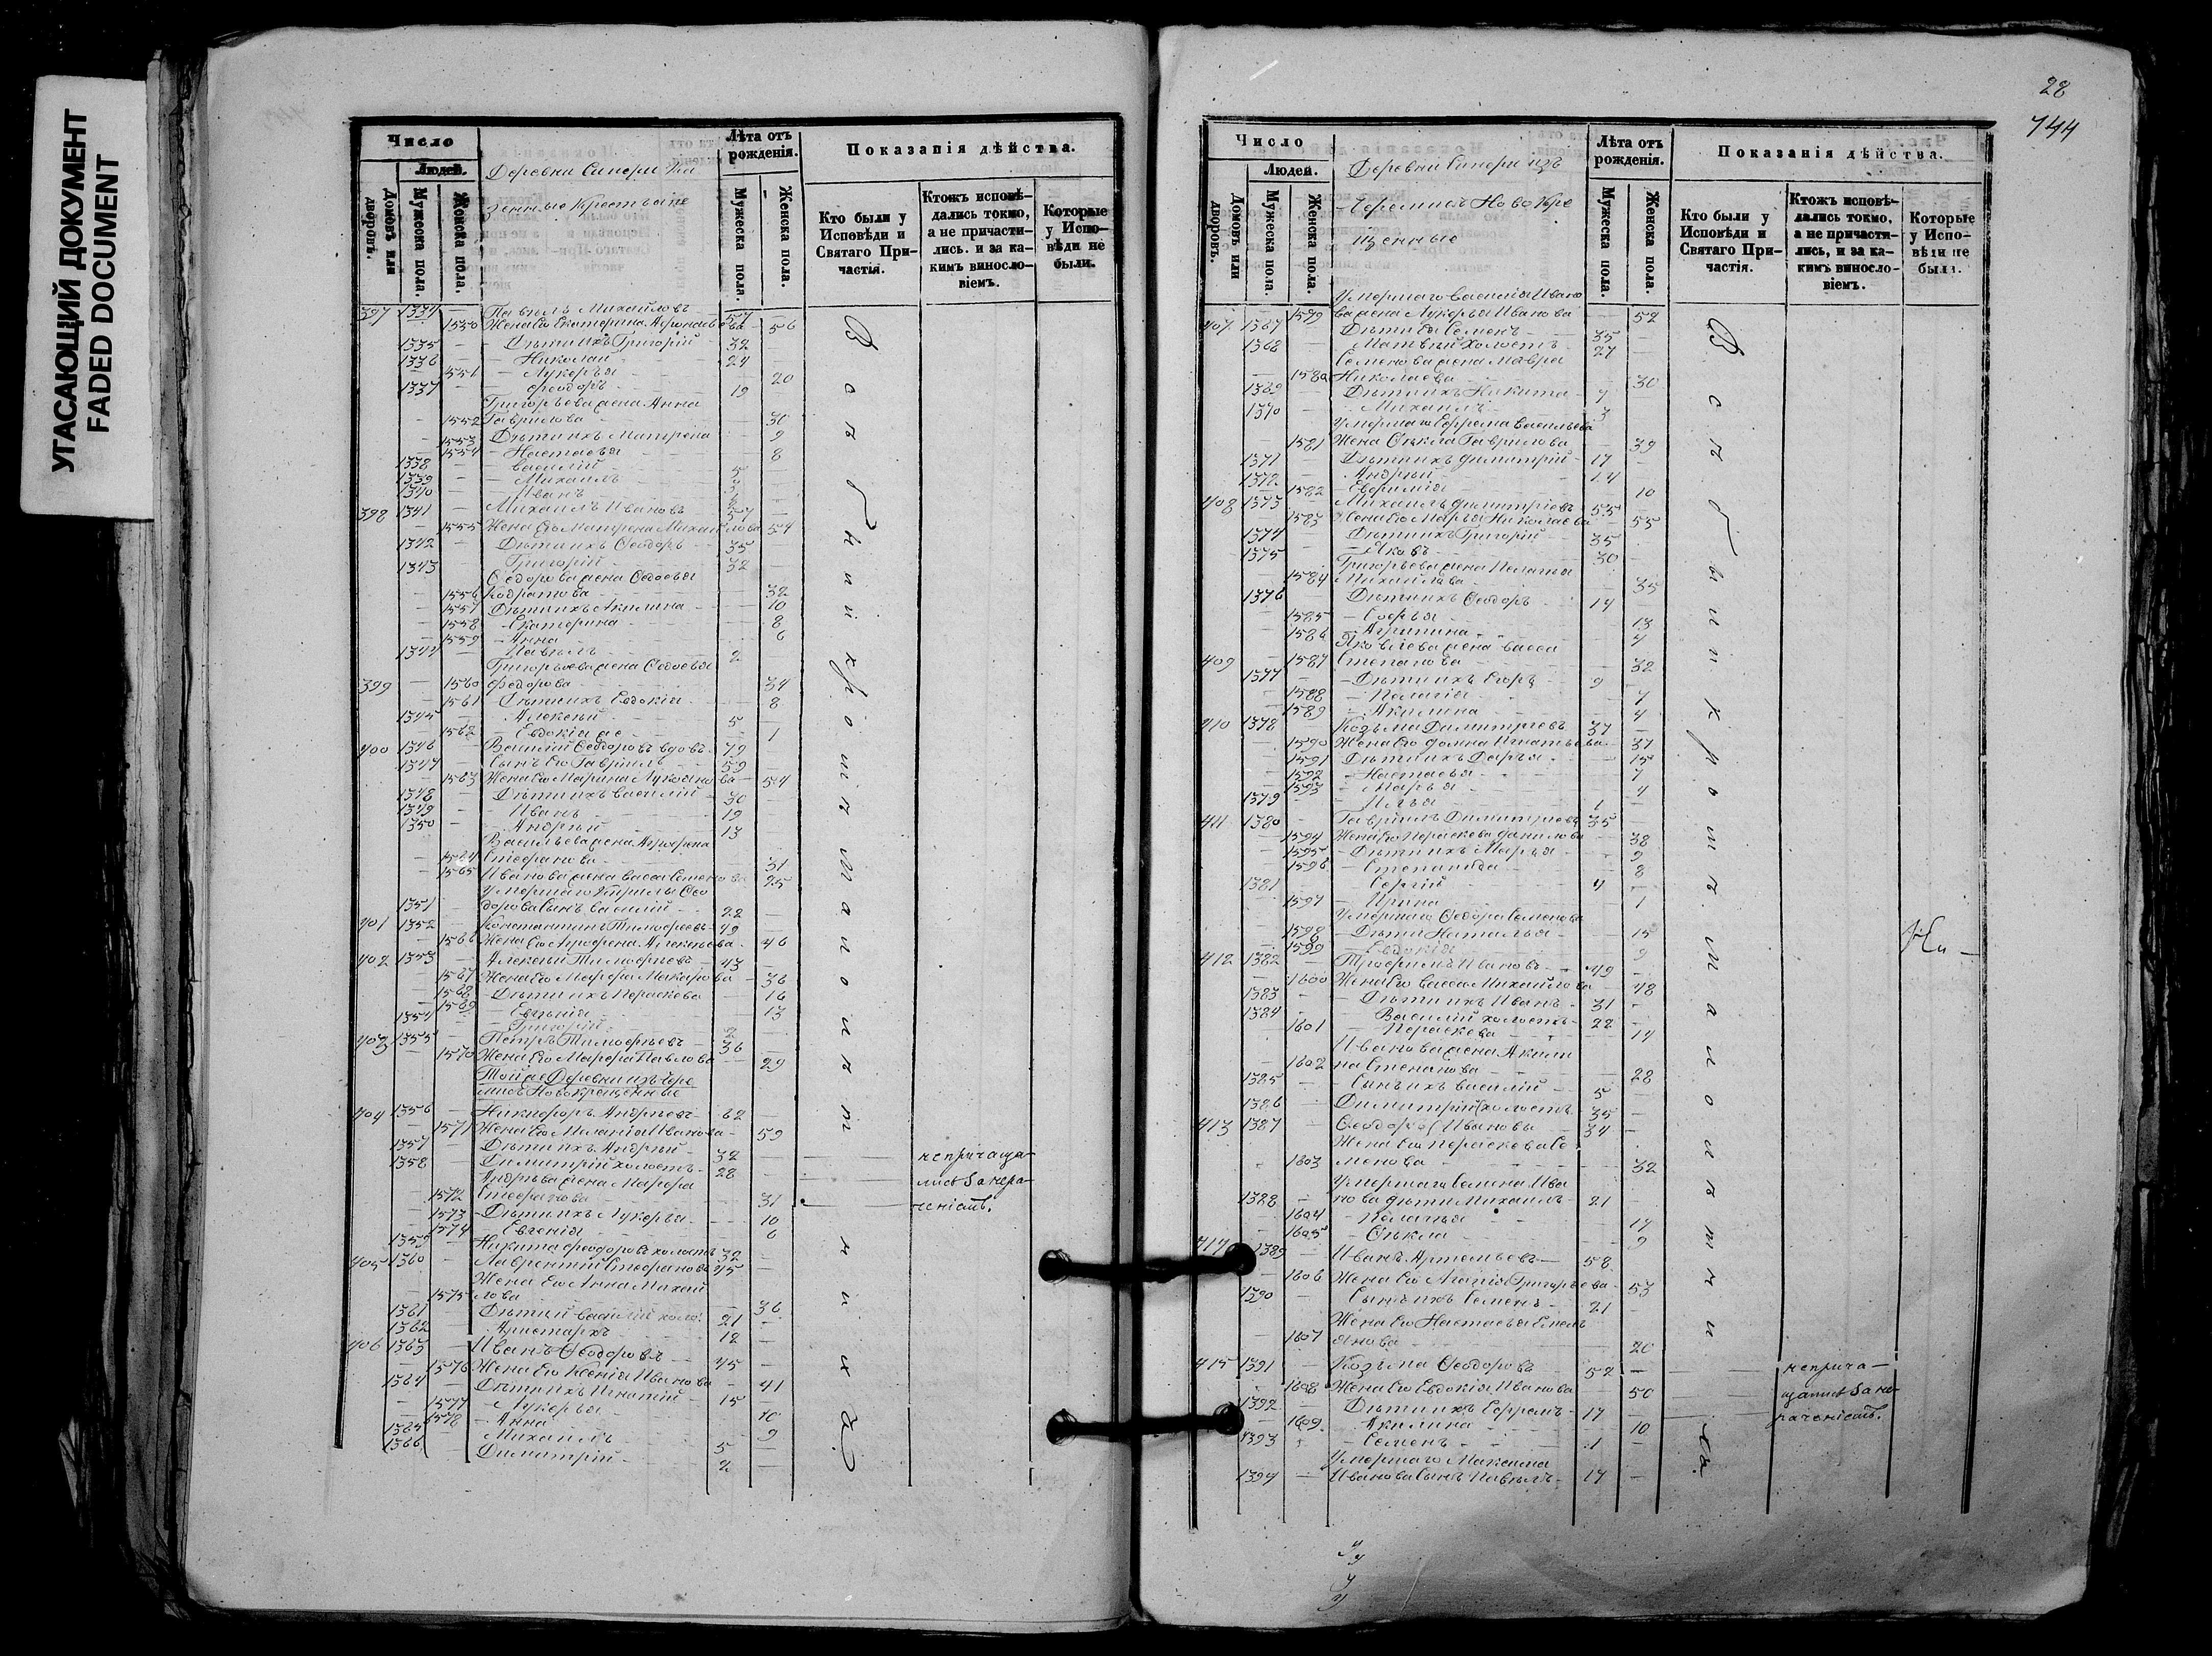 УГАСАЮЩИЙ ДОКУМЕНТ
FADED DOCUMENT
Число
Людей.
Домовъ или дворовъ.
Мужеска пола.
Женска пола.
Деревни
крестьяне
Лѣта отъ рожденія.
Мужеска пола.
Женска пола.
Показанія дѣйства.
Кто были у Исповѣди и Святаго Причастія.
Ктожъ исповѣдались токмо, а не причастились. и за какимъ винословіемъ.
Которые у Исповѣди не были.
397 1334 — Павелъ Михайловъ 57
1550 Жена его Екатерина 56
1335 — Дѣти ихъ Григорій 32
1336 — Николай 24
1551 — Лукерья 20
1337 — Феодоръ 19
Григорьева жена Анна
1552 Гаврилова 30
1553 Дѣти ихъ Матрена 9
1554 — Настасья 8
1338 — Василій 5
1339 — Михаилъ
1340 — Иванъ
398 1341 — Михаилъ Ивановъ 57
1555 Жена его Матрена Михайлова 54
1342 — Дѣти ихъ Ѳеодоръ 35
1343 — Григорій 32
Ѳедорова жена Ѳедосья
1556 Кодратова 32
1557 Дѣти ихъ Акилина 10
1558 — Екатерина 8
1559 — Анна 6
1344 — Павелъ 2
Григорьева жена Ѳедосья
399 — 1560 Федорова 34
1561 Дѣти ихъ Евдокія 8
1345 — Алексѣй 5
1562 — Евдокія же 1
400 1346 — Василій Ѳеодоровъ вдовъ 79
1347 — Сынъ его Гавріилъ 59
1563 Жена его Марина Лукоянова 54
1348 — Дѣти ихъ Василій 30
1349 — Иванъ 19
1350 — Андрей 13
Васильева жена
1564 Стефанова 31
1565 Иванова жена Васса 25
Умершаго
1351 Сынъ Василій 22
401 1352 — Константинъ Тимофеевъ 49
1566 Жена его Алексѣева 46
402 1353 — Алексѣй Тимофеевъ 43
1567 Жена его Марфа Макарова 36
1568 — Дѣти ихъ Параскева 16
1569 — Евгенія 13
1354 — Григорій 2
403 1355 — Петръ Тимофѣевъ 36
1570 Жена его Марфа Павлова 29
Той же Деревни изъ Чере
мисъ Новокрещенные
404 1356 — Никифоръ Андреевъ 62
1571 Жена его Меланія Иванова 59
1357 — Дѣти ихъ Андрей 32
1358 — Димитрій холостъ 28
Андрѣева жена Марфа
1572 Стефанова 31
1573 — Дѣти ихъ Лукерья 10
1574 — Евгенія 6
1359 — Никита Феодоровъ холостъ 32
405 1360 — Лаврентій Стефановъ 45
Жена его Анна Михай
1575 лова 36
1361 Василій холо. 21
1362 Аристархъ 12
406 1363 — Иванъ Ѳеодоровъ 45
1576 Жена его Ксенія Иванова 41
1364 — Дѣти ихъ Игнатій 15
1577 — Лукерья 10
1578 — Анна 9
1365 — Михаилъ 5
1366 — Димитрій 2
28
744
Число
Людей.
Домовъ или дворовъ.
Мужеска пола.
Женска пола.
Деревни изъ
Черемисъ Новокре
щенные
Лѣта отъ рожденія.
Мужеска пола.
Женска пола.
Показанія дѣйства.
Кто были у Исповѣди и Святаго Причастія.
Ктожъ исповѣдались токмо, а не причастились, и за какимъ винословіемъ.
Которые у Исповѣди не были.
Умершаго Василія Ивано
1579 ва жена Лукерья Иванова 52
407 1367 — Дѣти ея Семенъ 35
1368 — Матвѣй холостъ 27
Семенова жена Мавра
1580 Николаева 30
1369 — Дѣти ихъ Никита 7
1370 — Михаилъ 3
Умершаго Ефрема Васильева
1581 Жена Ѳекла Гаврилова 39
1371 — Дѣти ихъ Димитрій 17
1372 — Андрей 14
1582 — Евфимія 10
408 1373 — Михаилъ Димитріевъ 55
1583 Жена его Марья Николаева 55
1374 — Дѣти ихъ Григорій 35
1375 — Яковъ 30
Григорьева жена Пелагья
1584 Михайлова 35
1376 — Дѣти ихъ Ѳеодоръ 14
1585 — Софья 13
1586 — Агрипина 4
Яковлева жена Васса
409 — 1587 Степанова 32
1377 — Дѣти ихъ Егоръ 9
1588 — Пелагія 7
1589 — Акилина 4
410 1378 — Козьма Димитріевъ 37
1590 Жена его Домна Игнатьева 37
1591 Дѣти ихъ Дарья 15
1592 — Настасья 7
1593 — Марья 4
1379 — Илья 1
411 1380 — Гавріилъ Димитріевъ 35
1594 Жена его Параскева Данилова 38
1595 — Дѣти ихъ Марья 9
1596 — Степанида 8
1381 — Сергій 4
1597 — Ирина 1
Умершаго Ѳедора Семенова
1598 — Дѣти Наталья 15
1599 — Евдокія 9
412 1382 — Трофимъ Ивановъ 49
1600 Жена его Васса Михайлова 48
1383 — Дѣти ихъ Иванъ 31
1384 — Василій холостъ 22
1601 — Параскева 14
Иванова жена Акили
1602 на Степанова 28
1385 — Сынъ ихъ Василій 5
1386 — Димитрій холостъ 35
413 1387 — Ѳеодоръ Ивановы 34
Жена его Параскева Се
1603 менова 32
Умершаго Семена Ива
1388 — нова дѣти Михаилъ 21
1604 — Пелагья 14
1605 — Ѳекла 9
414 1389 — Иванъ Артемьевъ 58
1606 Жена его Агапія Григорьева 53
1390 — Сынъ ихъ Семенъ 21
Жена его Настасья Емель
1607 янова 20
415 1391 — Козьма Ѳеодоровъ 52
1608 Жена его Евдокія Иванова 50
1392 — Дѣти ихъ Ефремъ 17
1609 — Акилина 10
1393 — Семенъ 1
Умершаго Максима
1394 — Иванова Сынъ Павелъ 17